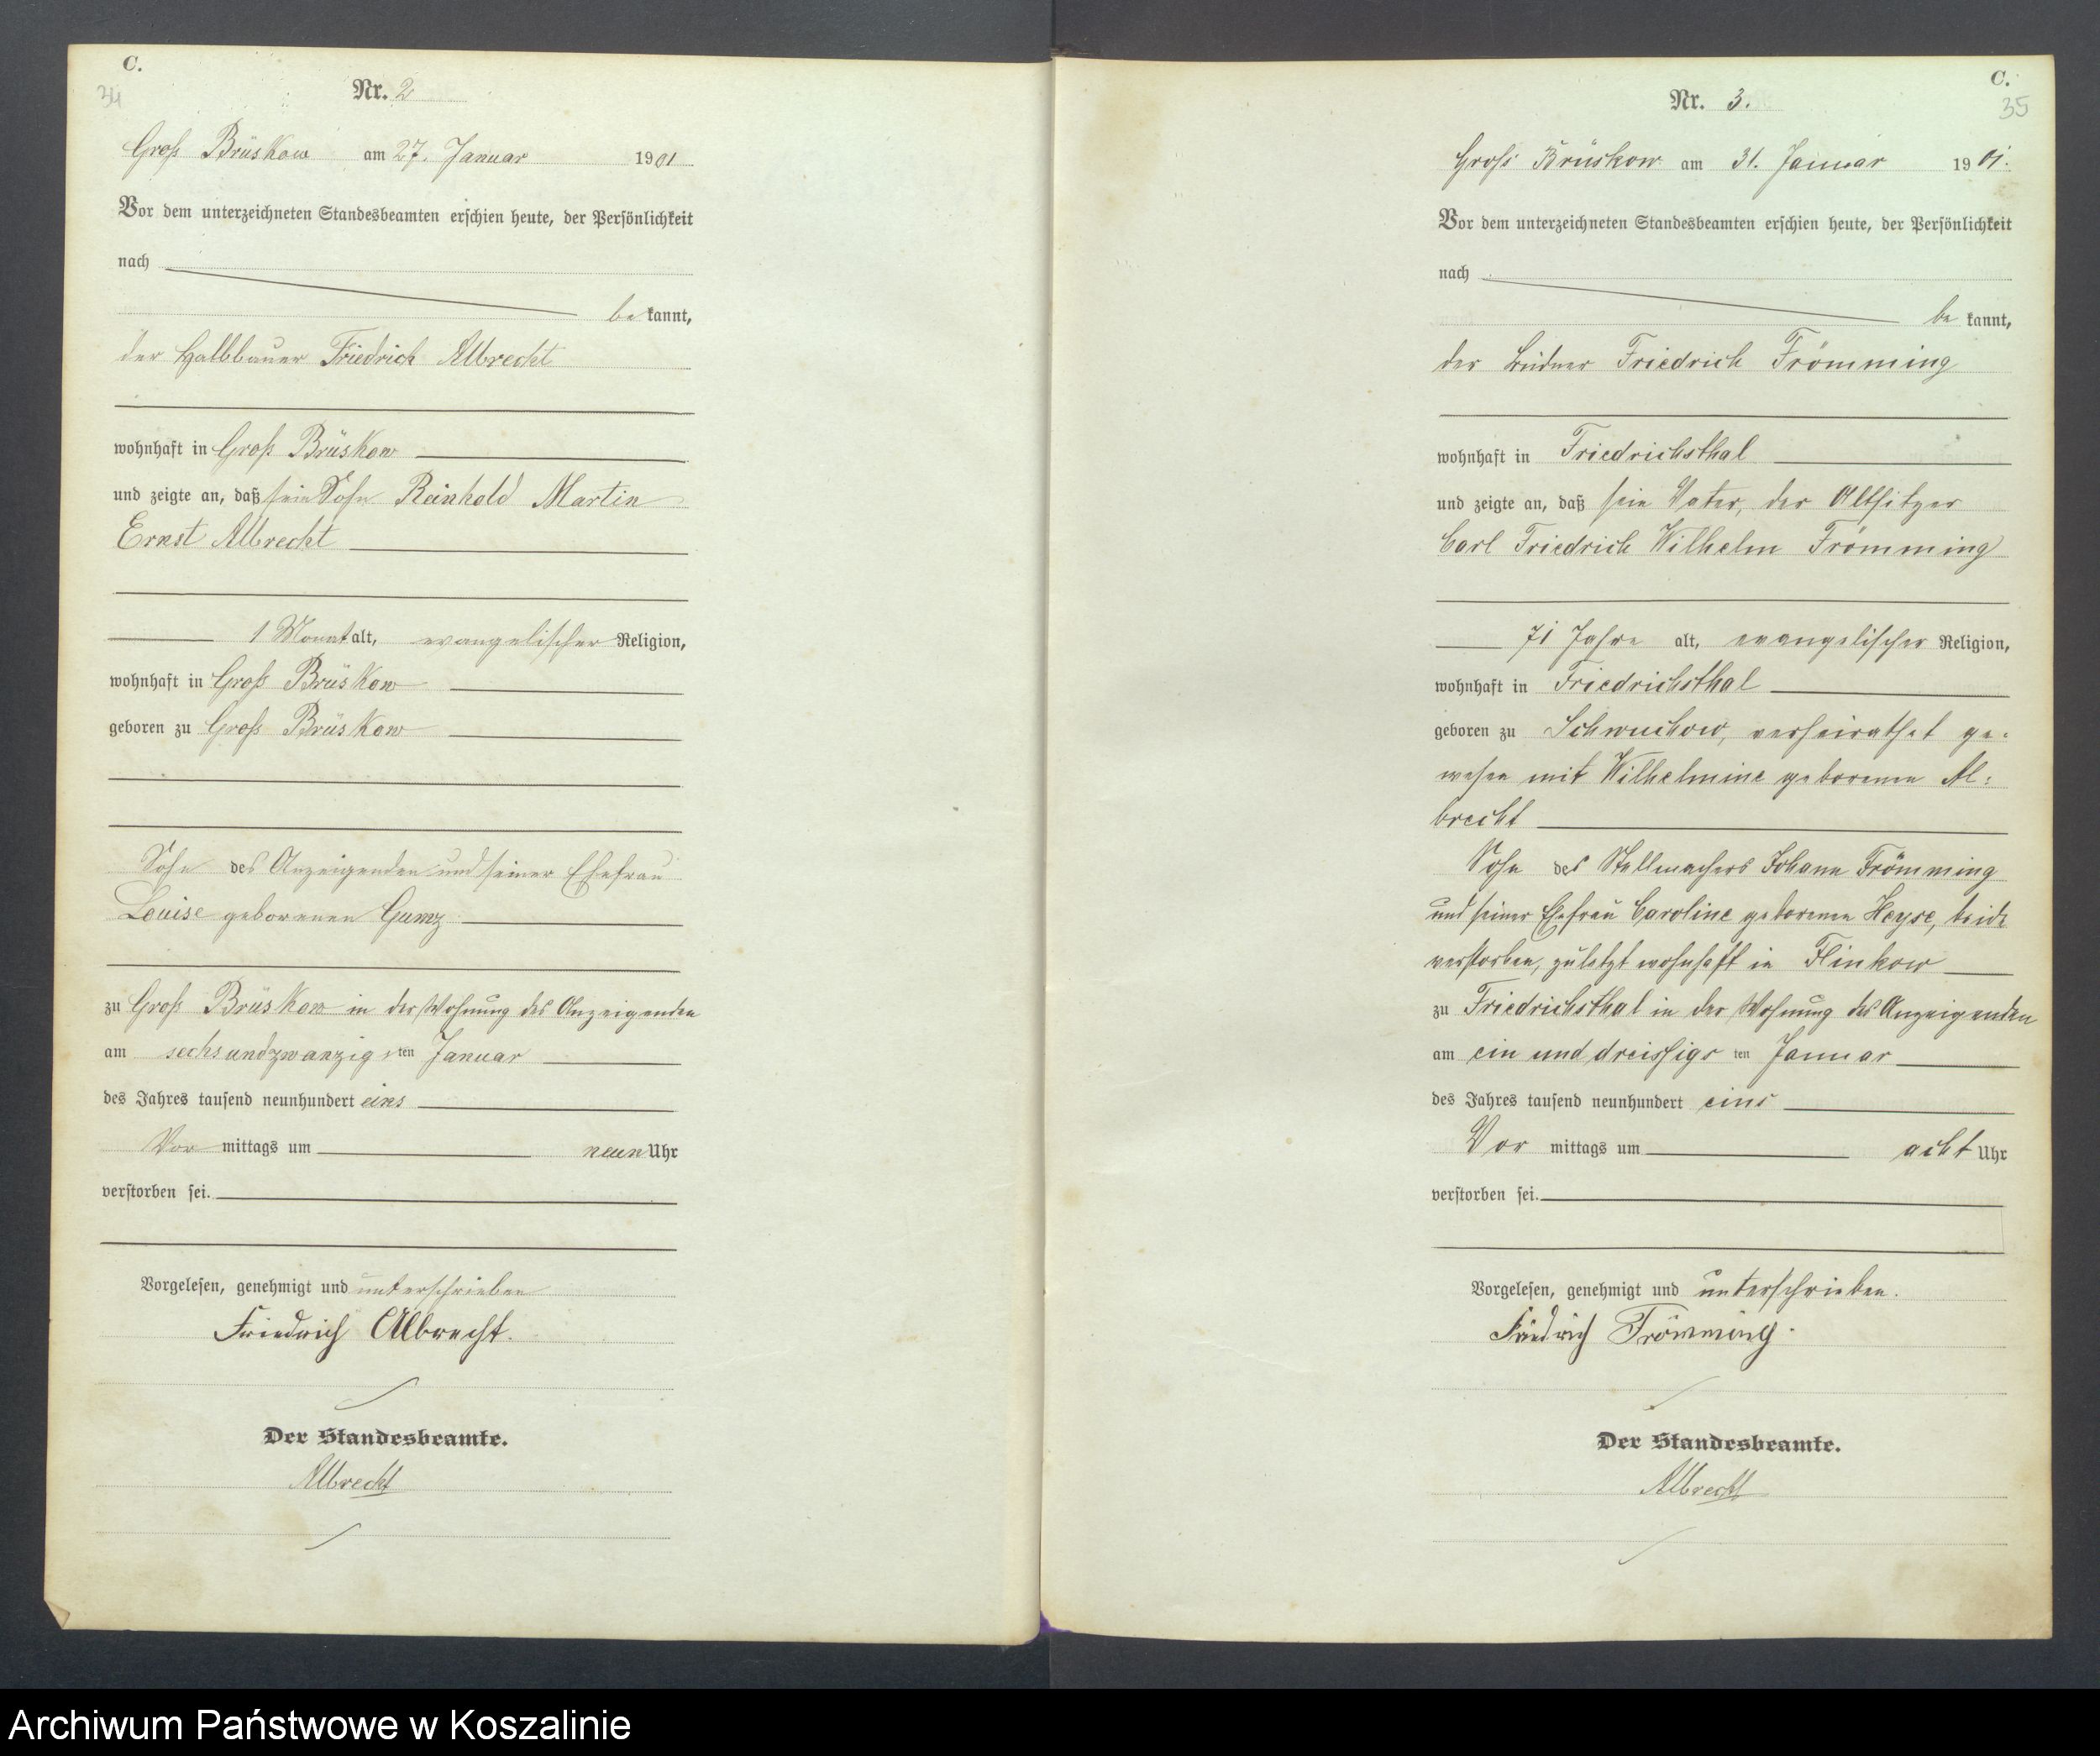 C.
34
Nr. 2
Groß Brüskow am 27. Januar 1901
Vor dem unterzeichneten Standesbeamten erschien heute, der Persönlichkeit
nach
be kannt,
der Halbbauer Friedrich Albrecht
wohnhaft in Groß Brüskow
und zeigte an, daß sein Sohn Reinhold Martin
Ernst Albrecht
1 Monat alt, evangelischer Religion,
wohnhaft in Groß Brüskow
geboren zu Groß Brüskow
Sohn des Anzeigenden und seiner Ehefrau
Louise geborenen Gumz
zu Groß Brüskow in der Wohnung des Anzeigenden
am sechsundzwanzigsten Januar
des Jahres tausend neunhundert eins
Vor mittags um neun Uhr
verstorben sei.
Vorgelesen, genehmigt und unterschrieben
Friedrich Albrecht.
Der Standesbeamte.
Albrecht
C.
35
Nr. 3.
Groß Brüskow am 31. Januar 1901.
Vor dem unterzeichneten Standesbeamten erschien heute, der Persönlichkeit
nach
be kannt,
der Büdner Friedrich Frömming
wohnhaft in Friedrichsthal
und zeigte an, daß sein Vater, der Altsitzer
Carl Friedrich Wilhelm Frömming
71 Jahre alt, evangelischer Religion,
wohnhaft in Friedrichsthal
geboren zu Schwuchow, verheirathet ge-
wesen mit Wilhelmine geborenen Al-
brecht
Sohn des Stellmachers Johann Frömming
und seiner Ehefrau Caroline geborenen Heyse, beide
verstorben, zuletzt wohnhaft in Flinkow
zu Friedrichsthal in der Wohnung des Anzeigenden
am ein und dreissigs ten Januar
des Jahres tausend neunhundert eins
Vor mittags um acht Uhr
verstorben sei.
Vorgelesen, genehmigt und unterschrieben.
Friedrich Frömming.
Der Standesbeamte.
Albrecht
Archiwum Państwowe w Koszalinie